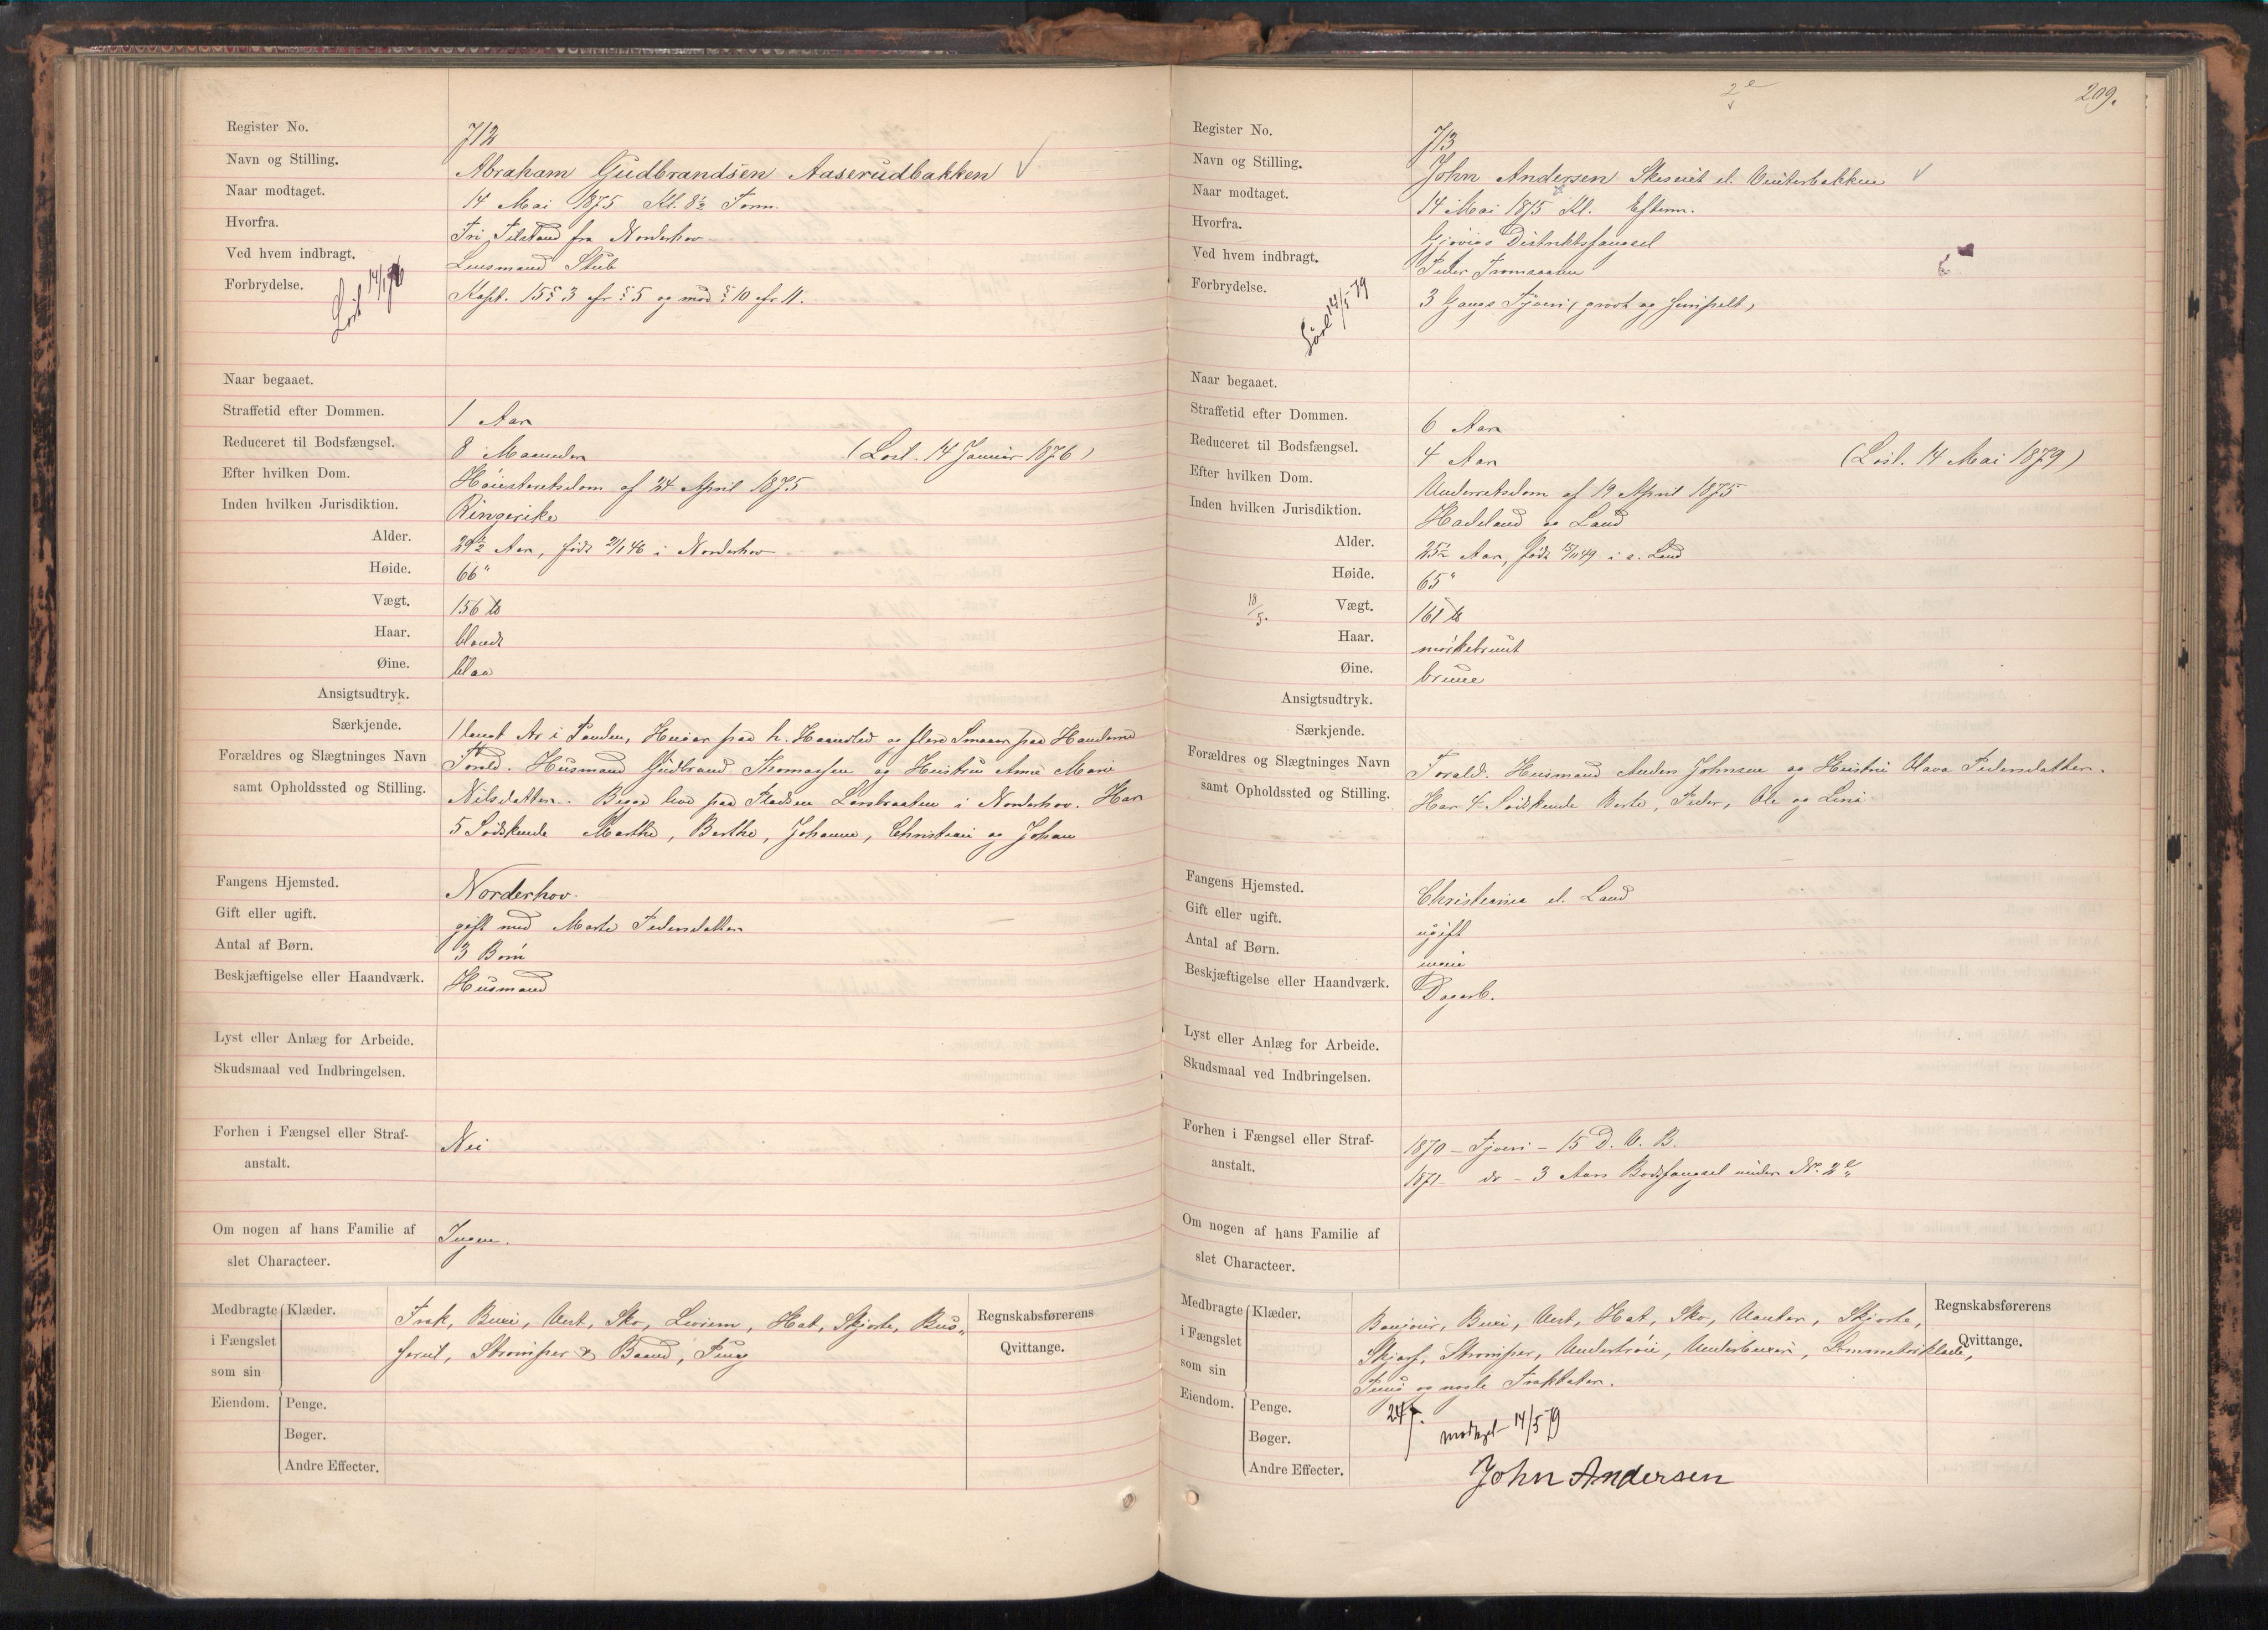 Register No. 712
Navn og Stilling. Abraham Gudbrandsen Aaserudbakken √
Naar modtaget. 14 Mai 1875 Kl. 8½ Form.
Hvorfra. Fri Tilstand fra Norderhov
Ved hvem indbragt. Lensmand Stub
Forbrydelse. Kapt. 15 § 3 cfr § 5 og mod § 10 cfr 11.
Løst 14/1 76
Naar begaaet.
Straffetid efter Dommen. 1 Aar
Reduceret til Bodsfængsel. 8 Maaneder (Løsl. 14 Januar 1876)
Efter hvilken Dom. Høiesteretsdom af 24 April 1875
Inden hvilken Jurisdiktion. Ringerike
Alder. 29½ Aar, født 21/1 46 i Norderhov
Høide. 66"
Vægt. 156 ℔
Haar. blondt
Øine. blaa
Ansigtsudtryk.
Særkjende. 1 langt Ar i Panden, Huiar paa h. Haandled og flere Smaaar paa Hænderne
Forældres og Slægtninges Navn Foræld. Husmand Gudbrand Thomassen og Hustru Anne Marie
samt Opholdssted og Stilling. Nilsdatter. Begge leve paa Pladsen Lersbraaten i Norderhov. Har
5 Sødskende Marthe, Berthe, Johanne, Christian og Johan
Fangens Hjemsted. Norderhov.
Gift eller ugift. gift med Marte Pedersdatter
Antal af Børn. 3 Børn
Beskjæftigelse eller Haandværk. Husmand
Lyst eller Anlæg for Arbeide.
Skudsmaal ved Indbringelsen.
Forhen i Fængsel eller Straf- Nei
anstalt.
Om nogen af hans Familie af Ingen.
slet Characteer.
Medbragte Klæder. Frak, Buxe, Vest, Sko, Livrem, Hat, Skjorte, Bus-
i Fængslet serul, Strømper & Baand, Pung
som sin
Eiendom. Penge.
Bøger.
Andre Effecter.
Regnskabsførerens
Qvittange.
2e
209.
Register No. 713
Navn og Stilling. John Andersen Skeseiet el. Vinterbakken √
Naar modtaget. 14 Mai 1875 Kl. Efterm.
Hvorfra. Gjøvigs Distriktsfængsel
Ved hvem indbragt. Peder Tromsaasen
Forbrydelse. 3 Gangs Tyveri (grovt og simpelt)
Løsl 14/5 79
Naar begaaet.
Straffetid efter Dommen. 6 Aar
Reduceret til Bodsfængsel. 4 Aar (Løsl. 14 Mai 1879)
Efter hvilken Dom. Underretsdom af 19 April 1875
Inden hvilken Jurisdiktion. Hadeland og Land
Alder. 25½ Aar, født 15/11 49 i s. Land
Høide. 65"
18/5. Vægt. 161 ℔
Haar. mørkebrunt
Øine. brune
Ansigtsudtryk.
Særkjende.
Forældres og Slægtninges Navn Foræld. Husmand Anders Johnsen og Hustru Olava Pedersdatter.
samt Opholdssted og Stilling. Har 4 Sødskende Berte, Peder, Ole og Lina
Fangens Hjemsted. Christiania el. Land
Gift eller ugift. ugift
Antal af Børn.
Beskjæftigelse eller Haandværk. Dagarb.
Lyst eller Anlæg for Arbeide.
Skudsmaal ved Indbringelsen.
Forhen i Fængsel eller Straf- 1870 – Tyveri – 15 D. V. B.
anstalt. 1871 – do – 3 Aars Bodsfængsel under No. 2e
Om nogen af hans Familie af
slet Characteer.
Medbragte Klæder. Bonjour, Buxe, Vest, Hat, Sko, Vanter, Skjorte,
i Fængslet Skjerf, Strømper, Undertrøie, Underbuxer, Lommetørklæde,
som sin Pung og nogle Traktater.
Eiendom. Penge. 24 β.
Bøger. modtget 14/5 79
Andre Effecter. John Andersen
Regnskabsførerens
Qvittange.